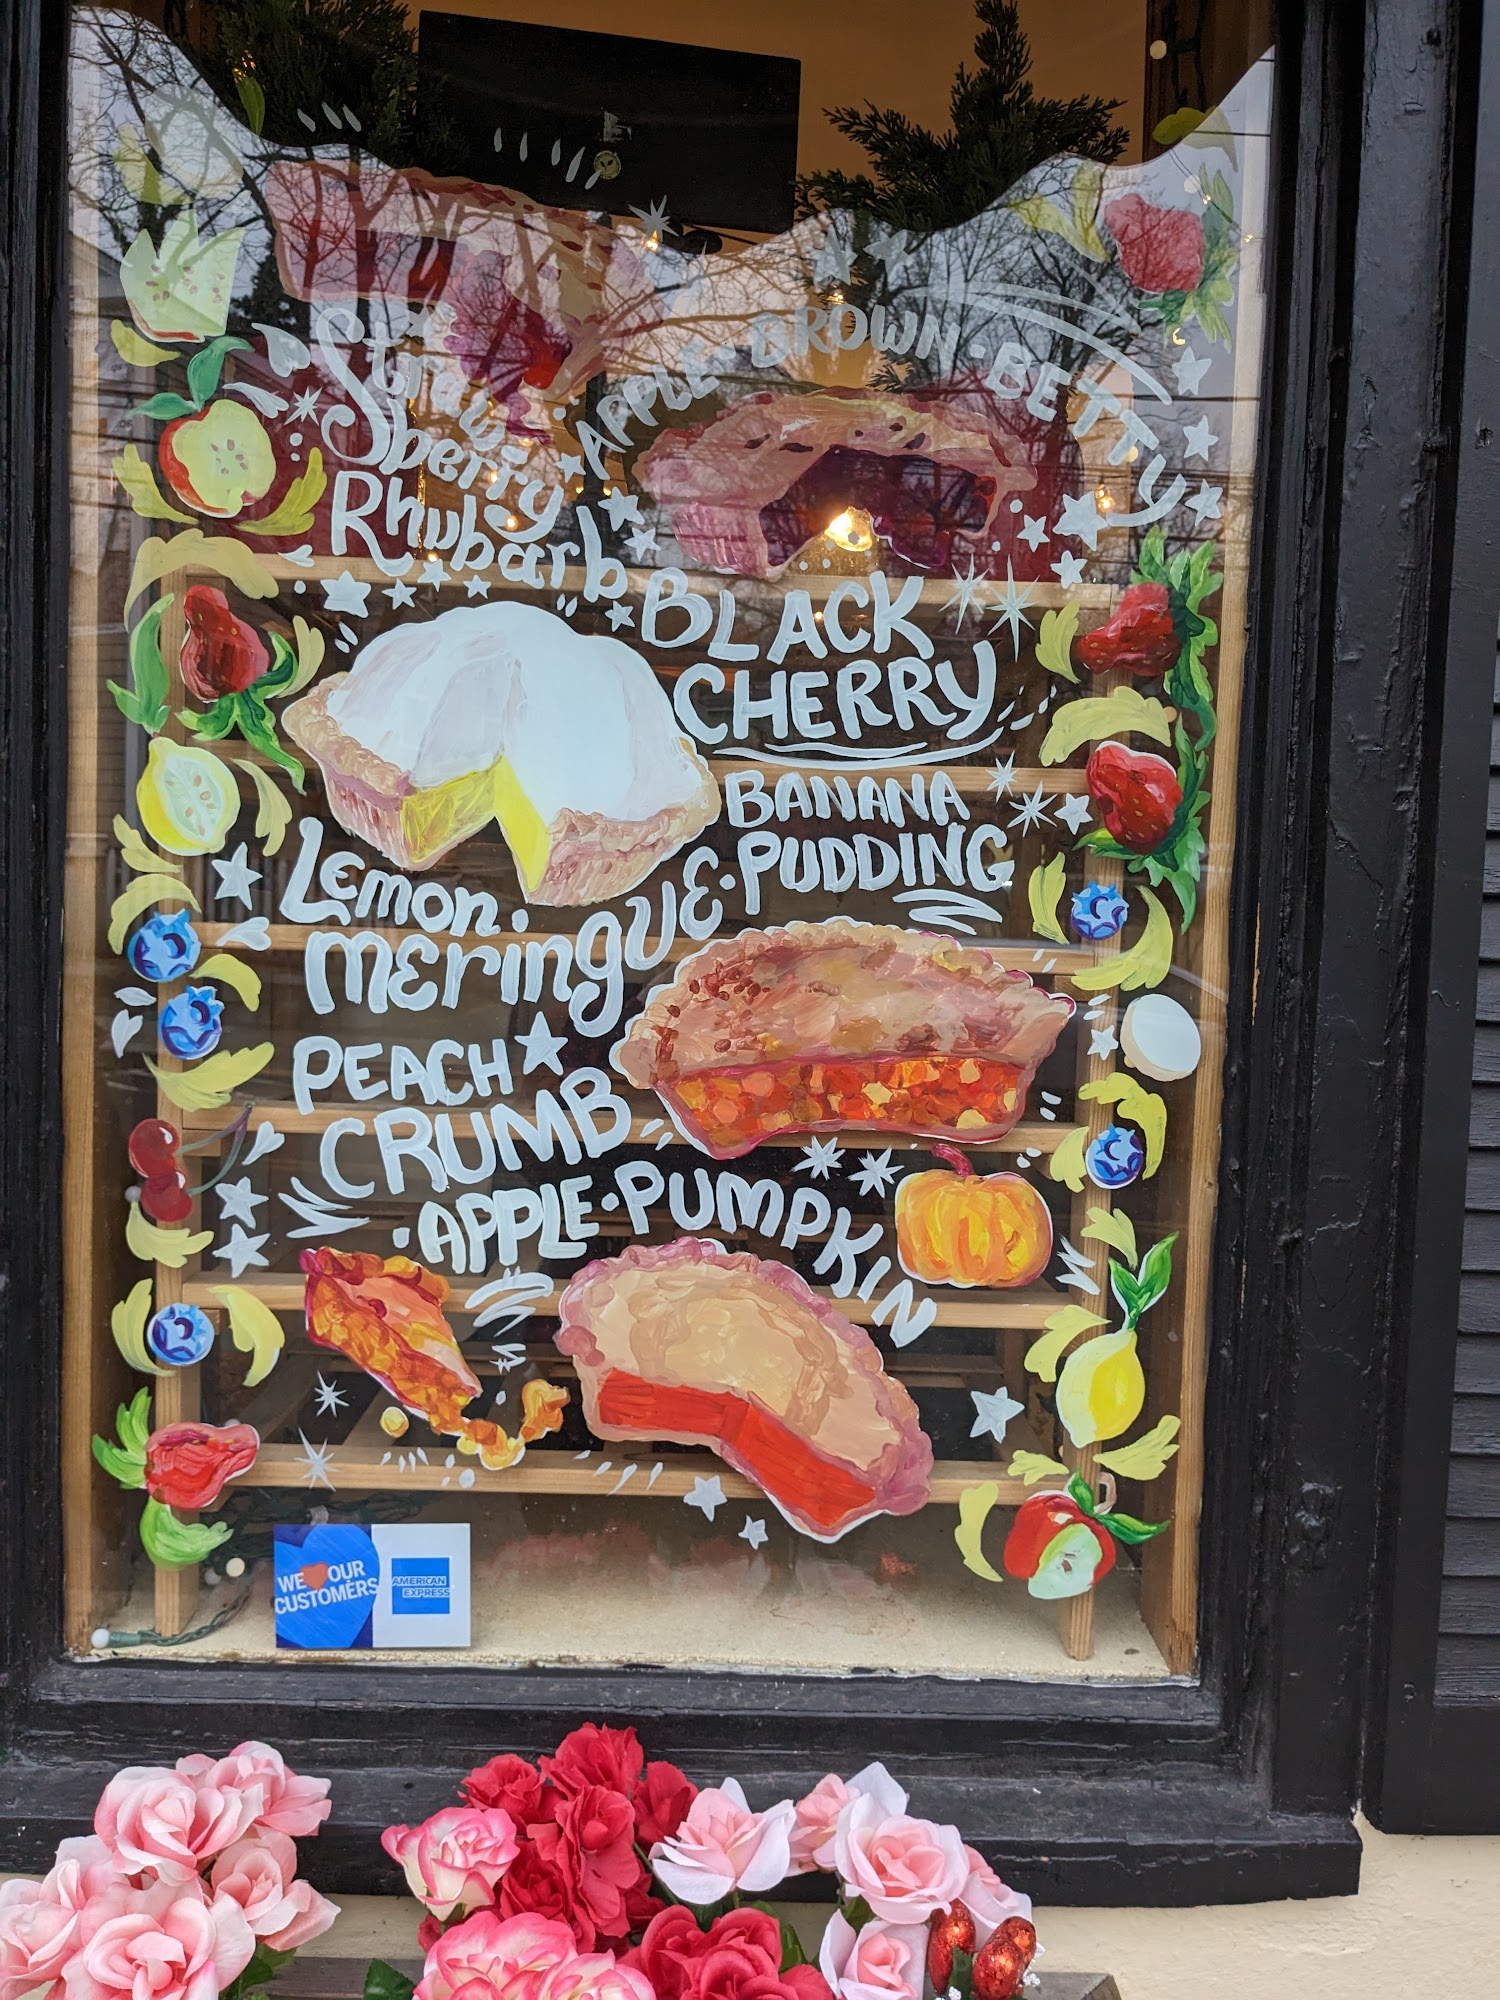 Straw-
berry
Rhubarb
APPLE · BROWN · BETTY
BLACK
CHERRY
BANANA
PUDDING
Lemon
Meringue
PEACH
CRUMB
APPLE · PUMPKIN
WE OUR
CUSTOMERS
AMERICAN
EXPRESS